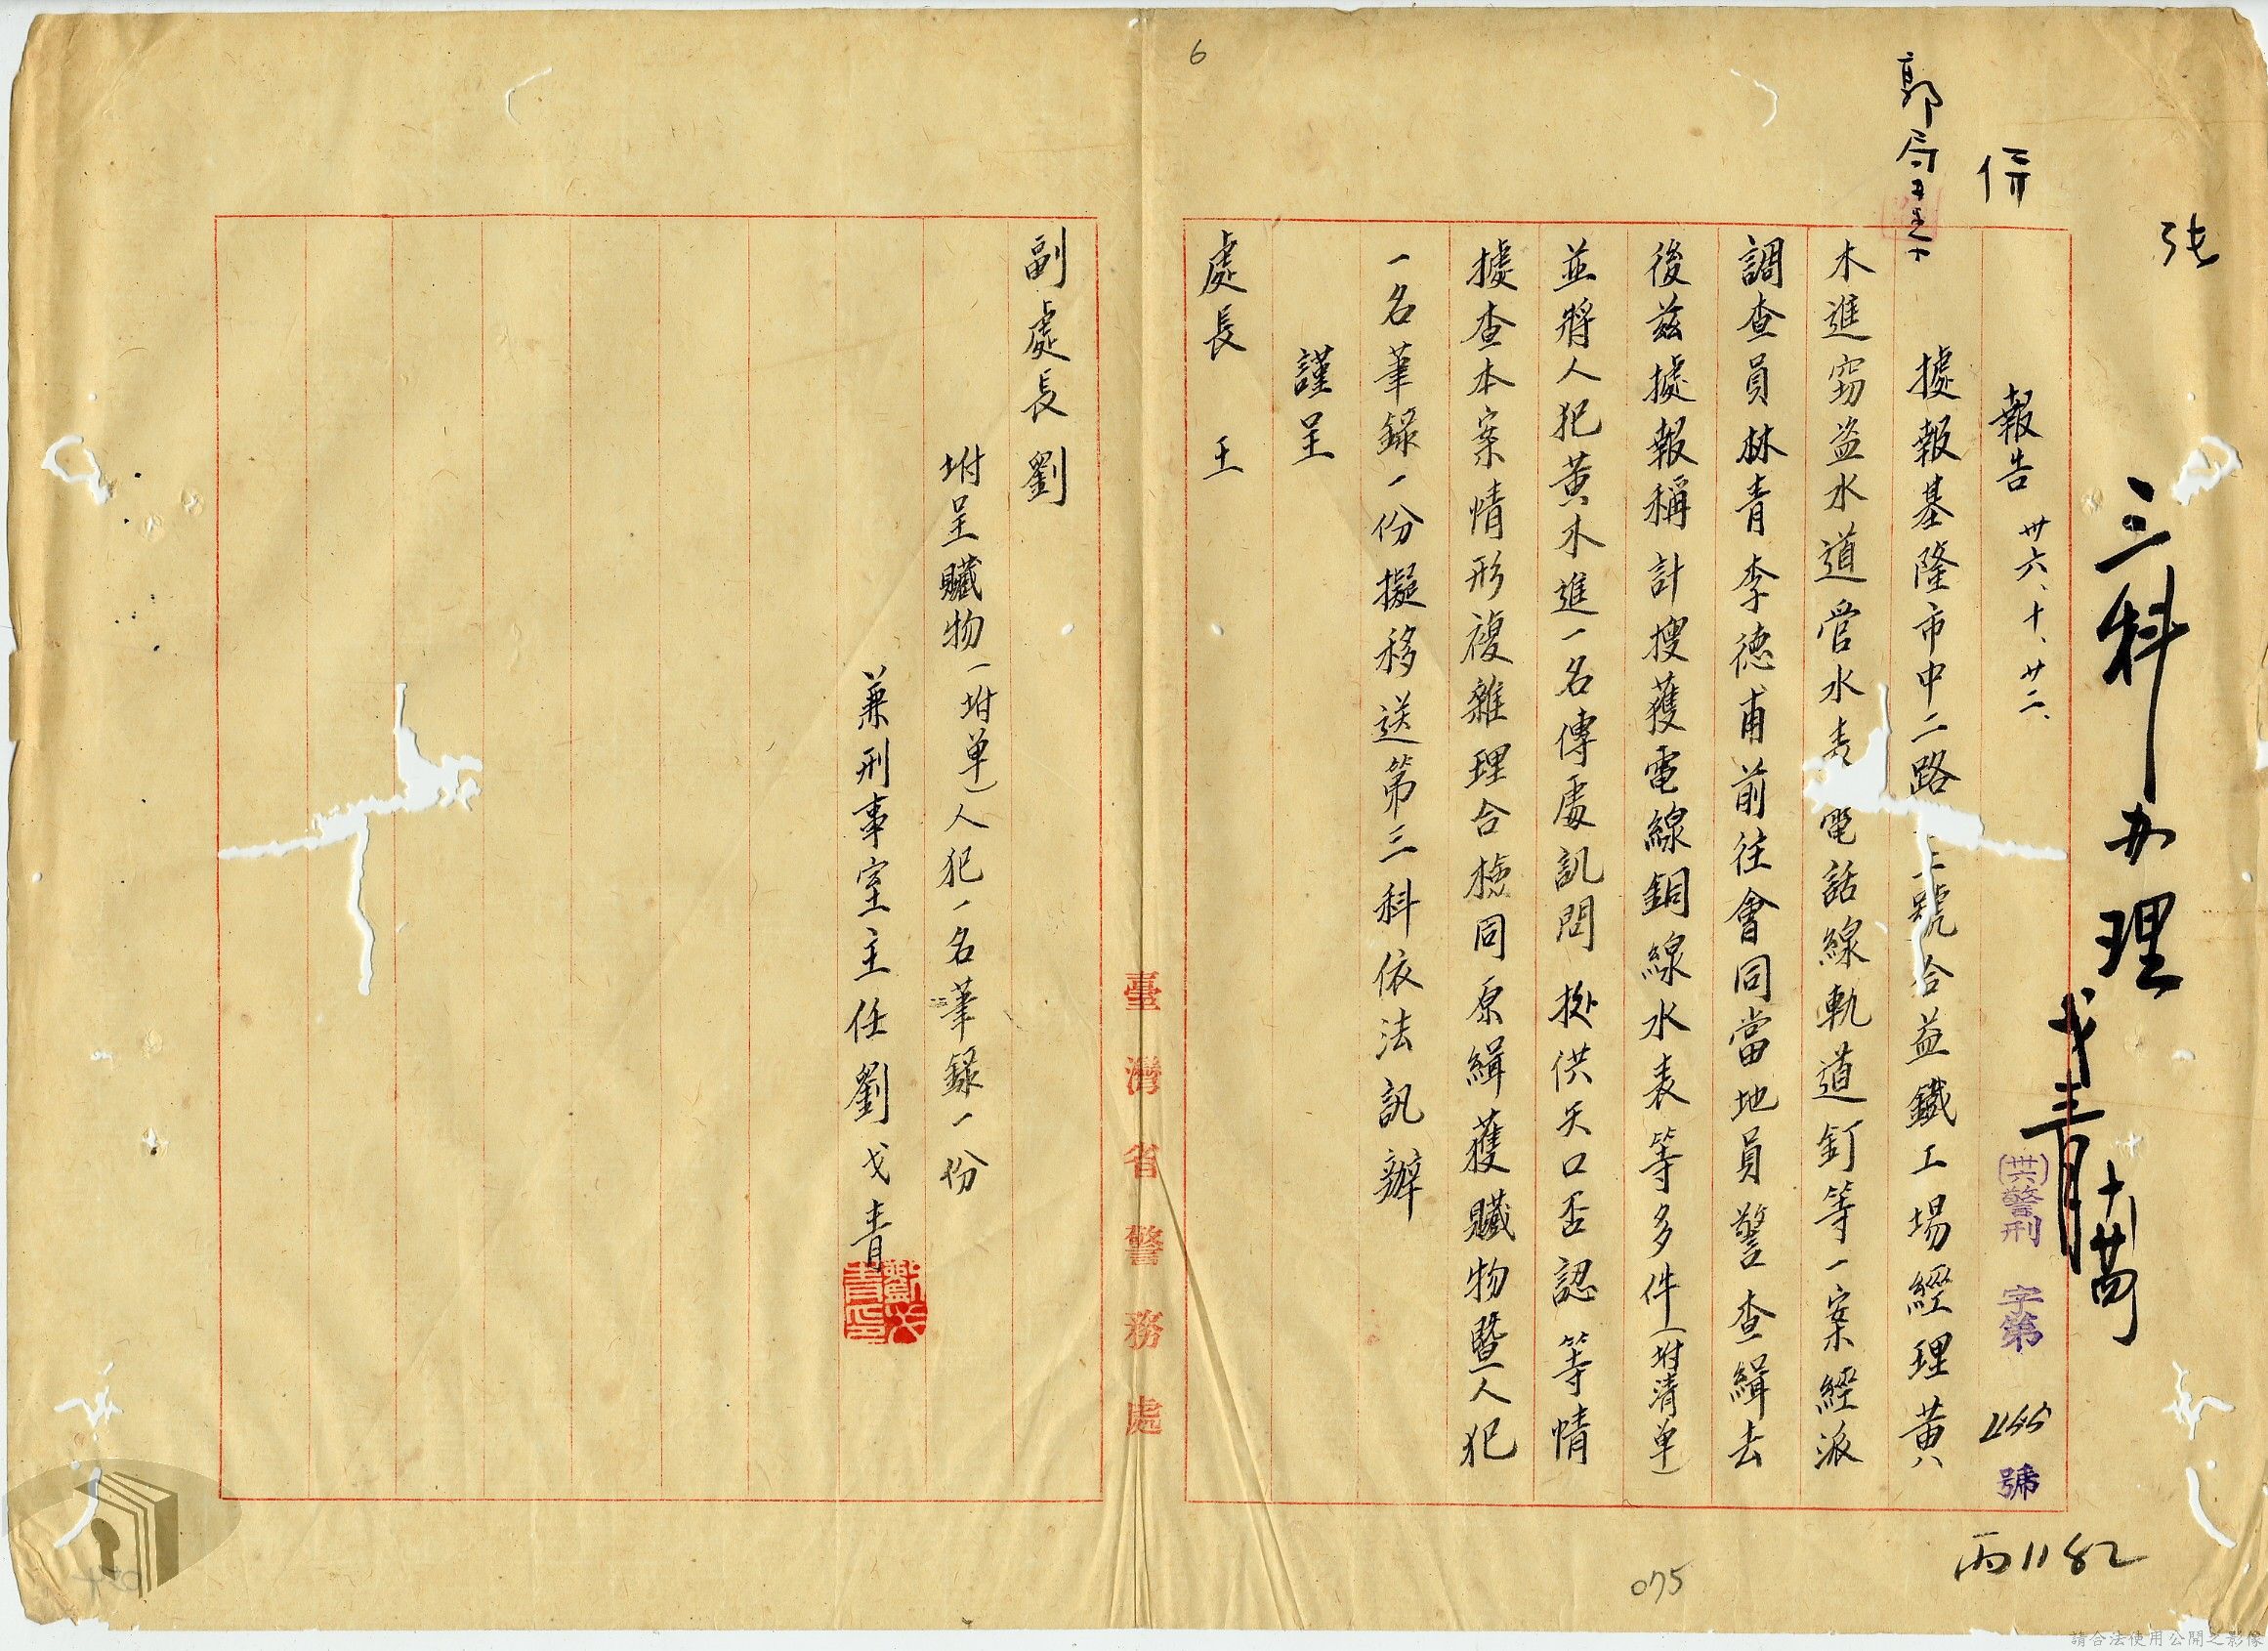 6
張
三科办理
戈青
報告 卅六、十、廿二、
(卅六)警刑 字第 號
據報基隆市中二路 號合益鐵工場經理黃
木進竊盗水道管水表電話線軌道釘等一案經派
調查員林青李德甫前往會同當地員警查緝去
後茲據報稱計搜獲電線銅線水表等多件(坿清单)
並將人犯黃木進一名傳處訊問拠供矢口否認等情
據查本案情形複雜理合檢同原緝獲贜物暨人犯
一名筆錄一份擬移送第三科依法訊辦
謹呈
處長 王
臺灣省警務處
副處長 劉
坿呈贜物(坿单)人犯一名筆錄一份
兼刑事室主任劉戈青
丙1182
075
請合法使用公開之影像